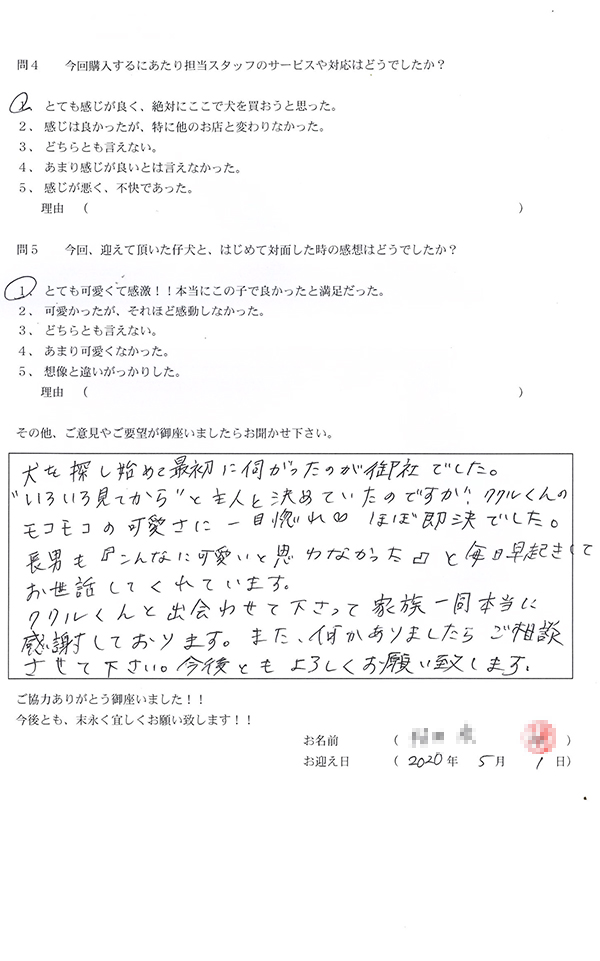 問4 今回購入するにあたり担当スタッフのサービスや対応はどうでしたか？
1、とても感じが良く、絶対にここで犬を買おうと思った。
2、感じは良かったが、特に他のお店と変わりなかった。
3、どちらとも言えない。
4、あまり感じが良いとは言えなかった。
5、感じが悪く、不快であった。
理由 （ ）
問5 今回、迎えて頂いた仔犬と、はじめて対面した時の感想はどうでしたか？
1、とても可愛くて感激！！本当にこの子で良かったと満足だった。
2、可愛かったが、それほど感動しなかった。
3、どちらとも言えない。
4、あまり可愛くなかった。
5、想像と違いがっかりした。
理由 （ ）
その他、ご意見やご要望が御座いましたらお聞かせ下さい。
犬を探し始めて最初に伺がったのが御社でした。
"いろいろ見てから"と主人と決めていたのですが、ククルくんの
モコモコの可愛さに一目惚れ♡ ほぼ即決でした。
長男も『こんなに可愛いと思わなかった』と毎日早起きして
お世話してくれています。
ククルくんと出会わせて下さって家族一同本当に
感謝しております。また、何かありましたらご相談
させて下さい。今後ともよろしくお願い致します。
ご協力ありがとう御座いました！！
今後とも、末永く宜しくお願い致します！！
お名前 （ ）
お迎え日 （2020年 5月 1日）